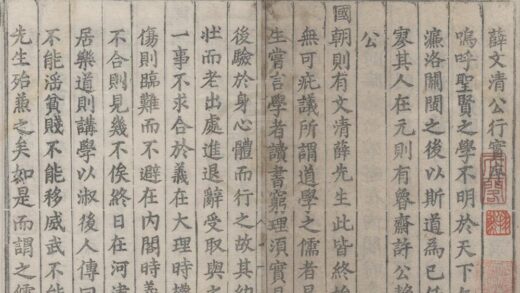 薛文清公行實序
嗚呼聖賢之學不明於天下久
濂洛關閩之後以斯道為已任
寥其人在元則有魯齋許公静
公
國朝則有文清薛先生此皆終始
無可疵議所謂道學之儒者是
生嘗言學者讀書窮理須實見
後驗於身心體而行之故其幼
壯而老出處進退辭受取與之
一事不求合於義在大理時權
傷則臨難而不避在内閣時義
不合則見幾不俟終日在河津
居樂道則講學以淑後人傳曰
不能淫貧賤不能移威武不能
先生殆兼之矣如是而謂之儒